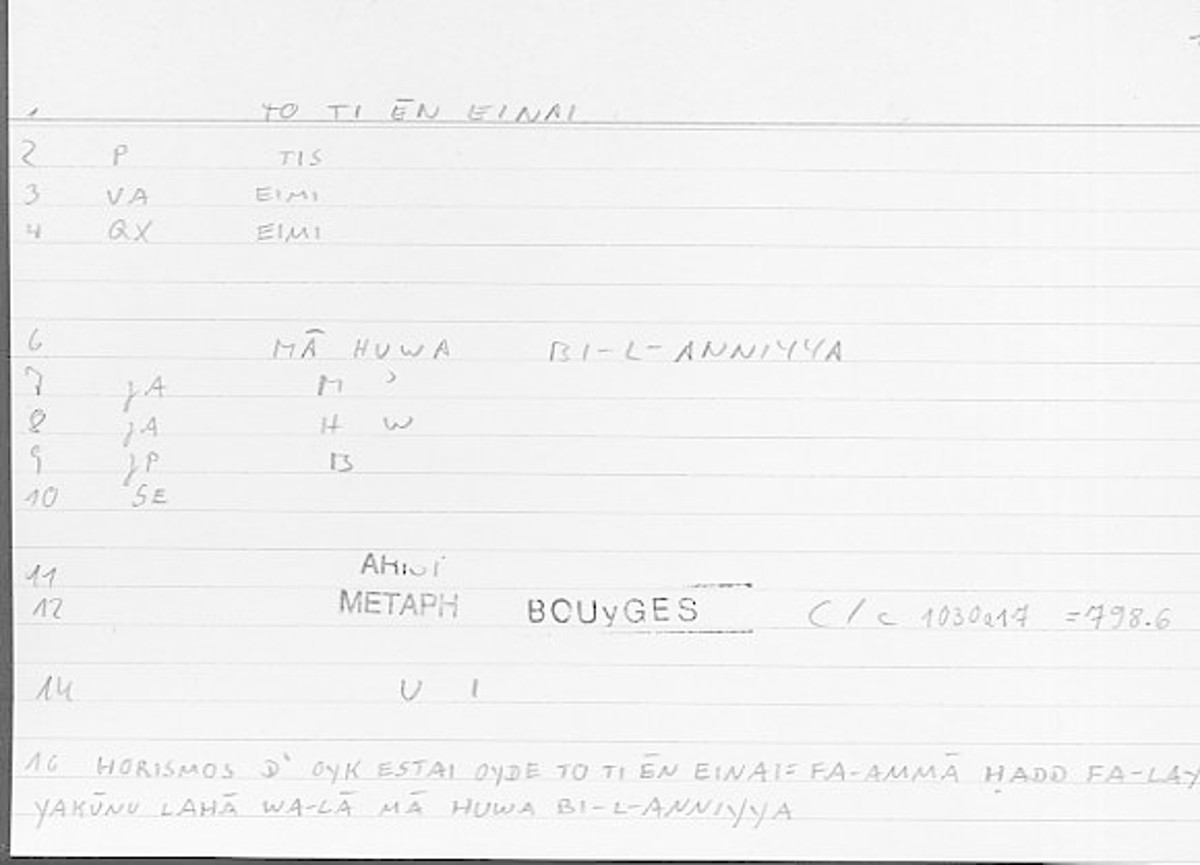 1 TO TI ĒN EINAI
2 P TIS
3 VA EIMI
4 QX EIMI
6 MĀ HUWA BI-L-ANNIYYA
7 JA M ʾ
8 JA H W
9 JP B
10 SE
11
12 METAPH BOUyGES C/c 1030a17 =798.6
14 U I
16 HORISMOS D' OYK ESTAI OYDE TO TI ĒN EINAI= FA-AMMĀ ḤADD FA-LAY
YAKŪNU LAHĀ WA-LĀ MĀ HUWA BI-L-ANNIYYA